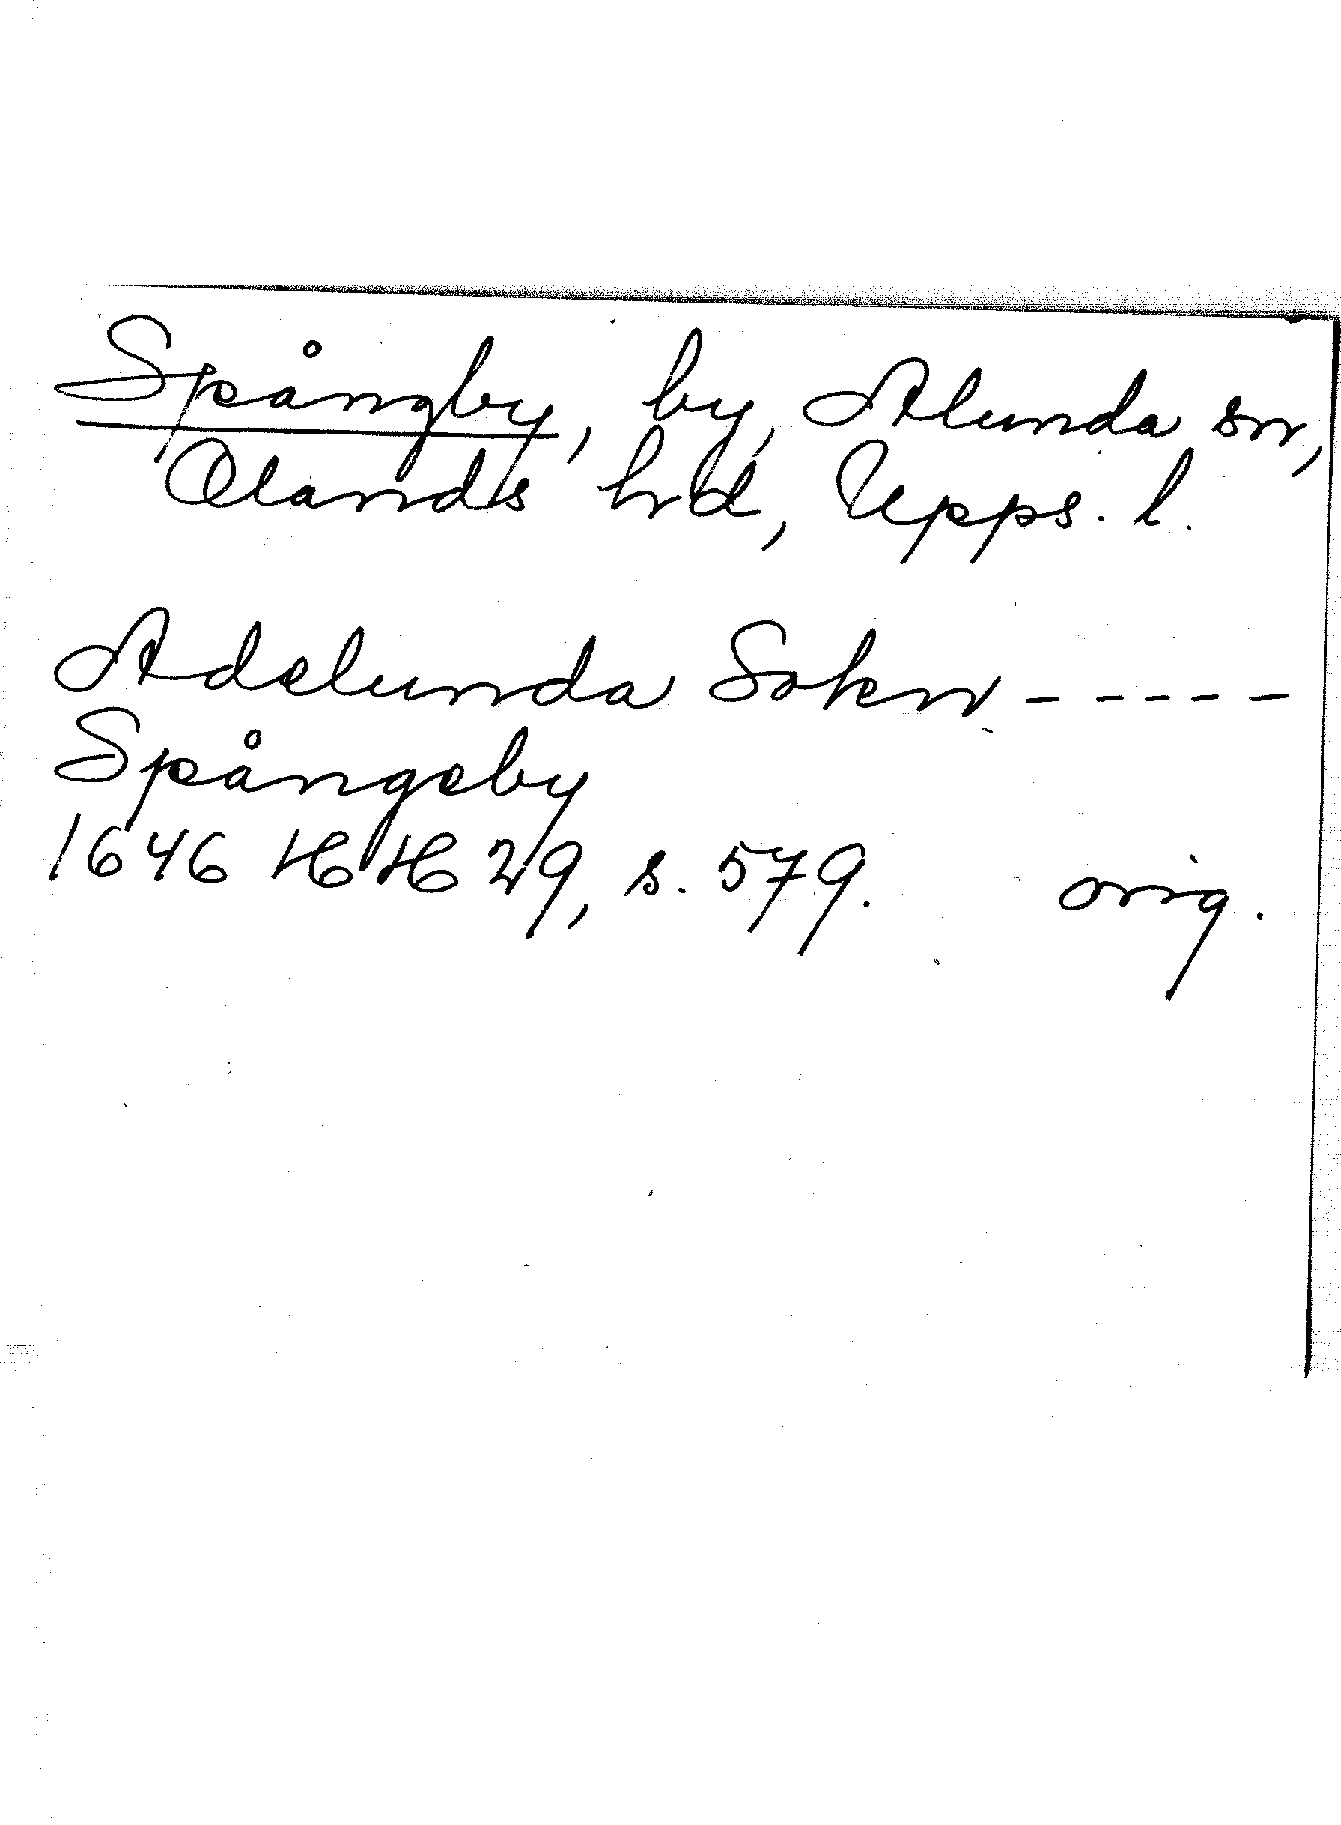 Spångby, by, Alunda sn,
Olands hd, Upps. l.
Adelunda Sokn - - - - -
Spångeby
1646 HH 29, s. 579. orig.